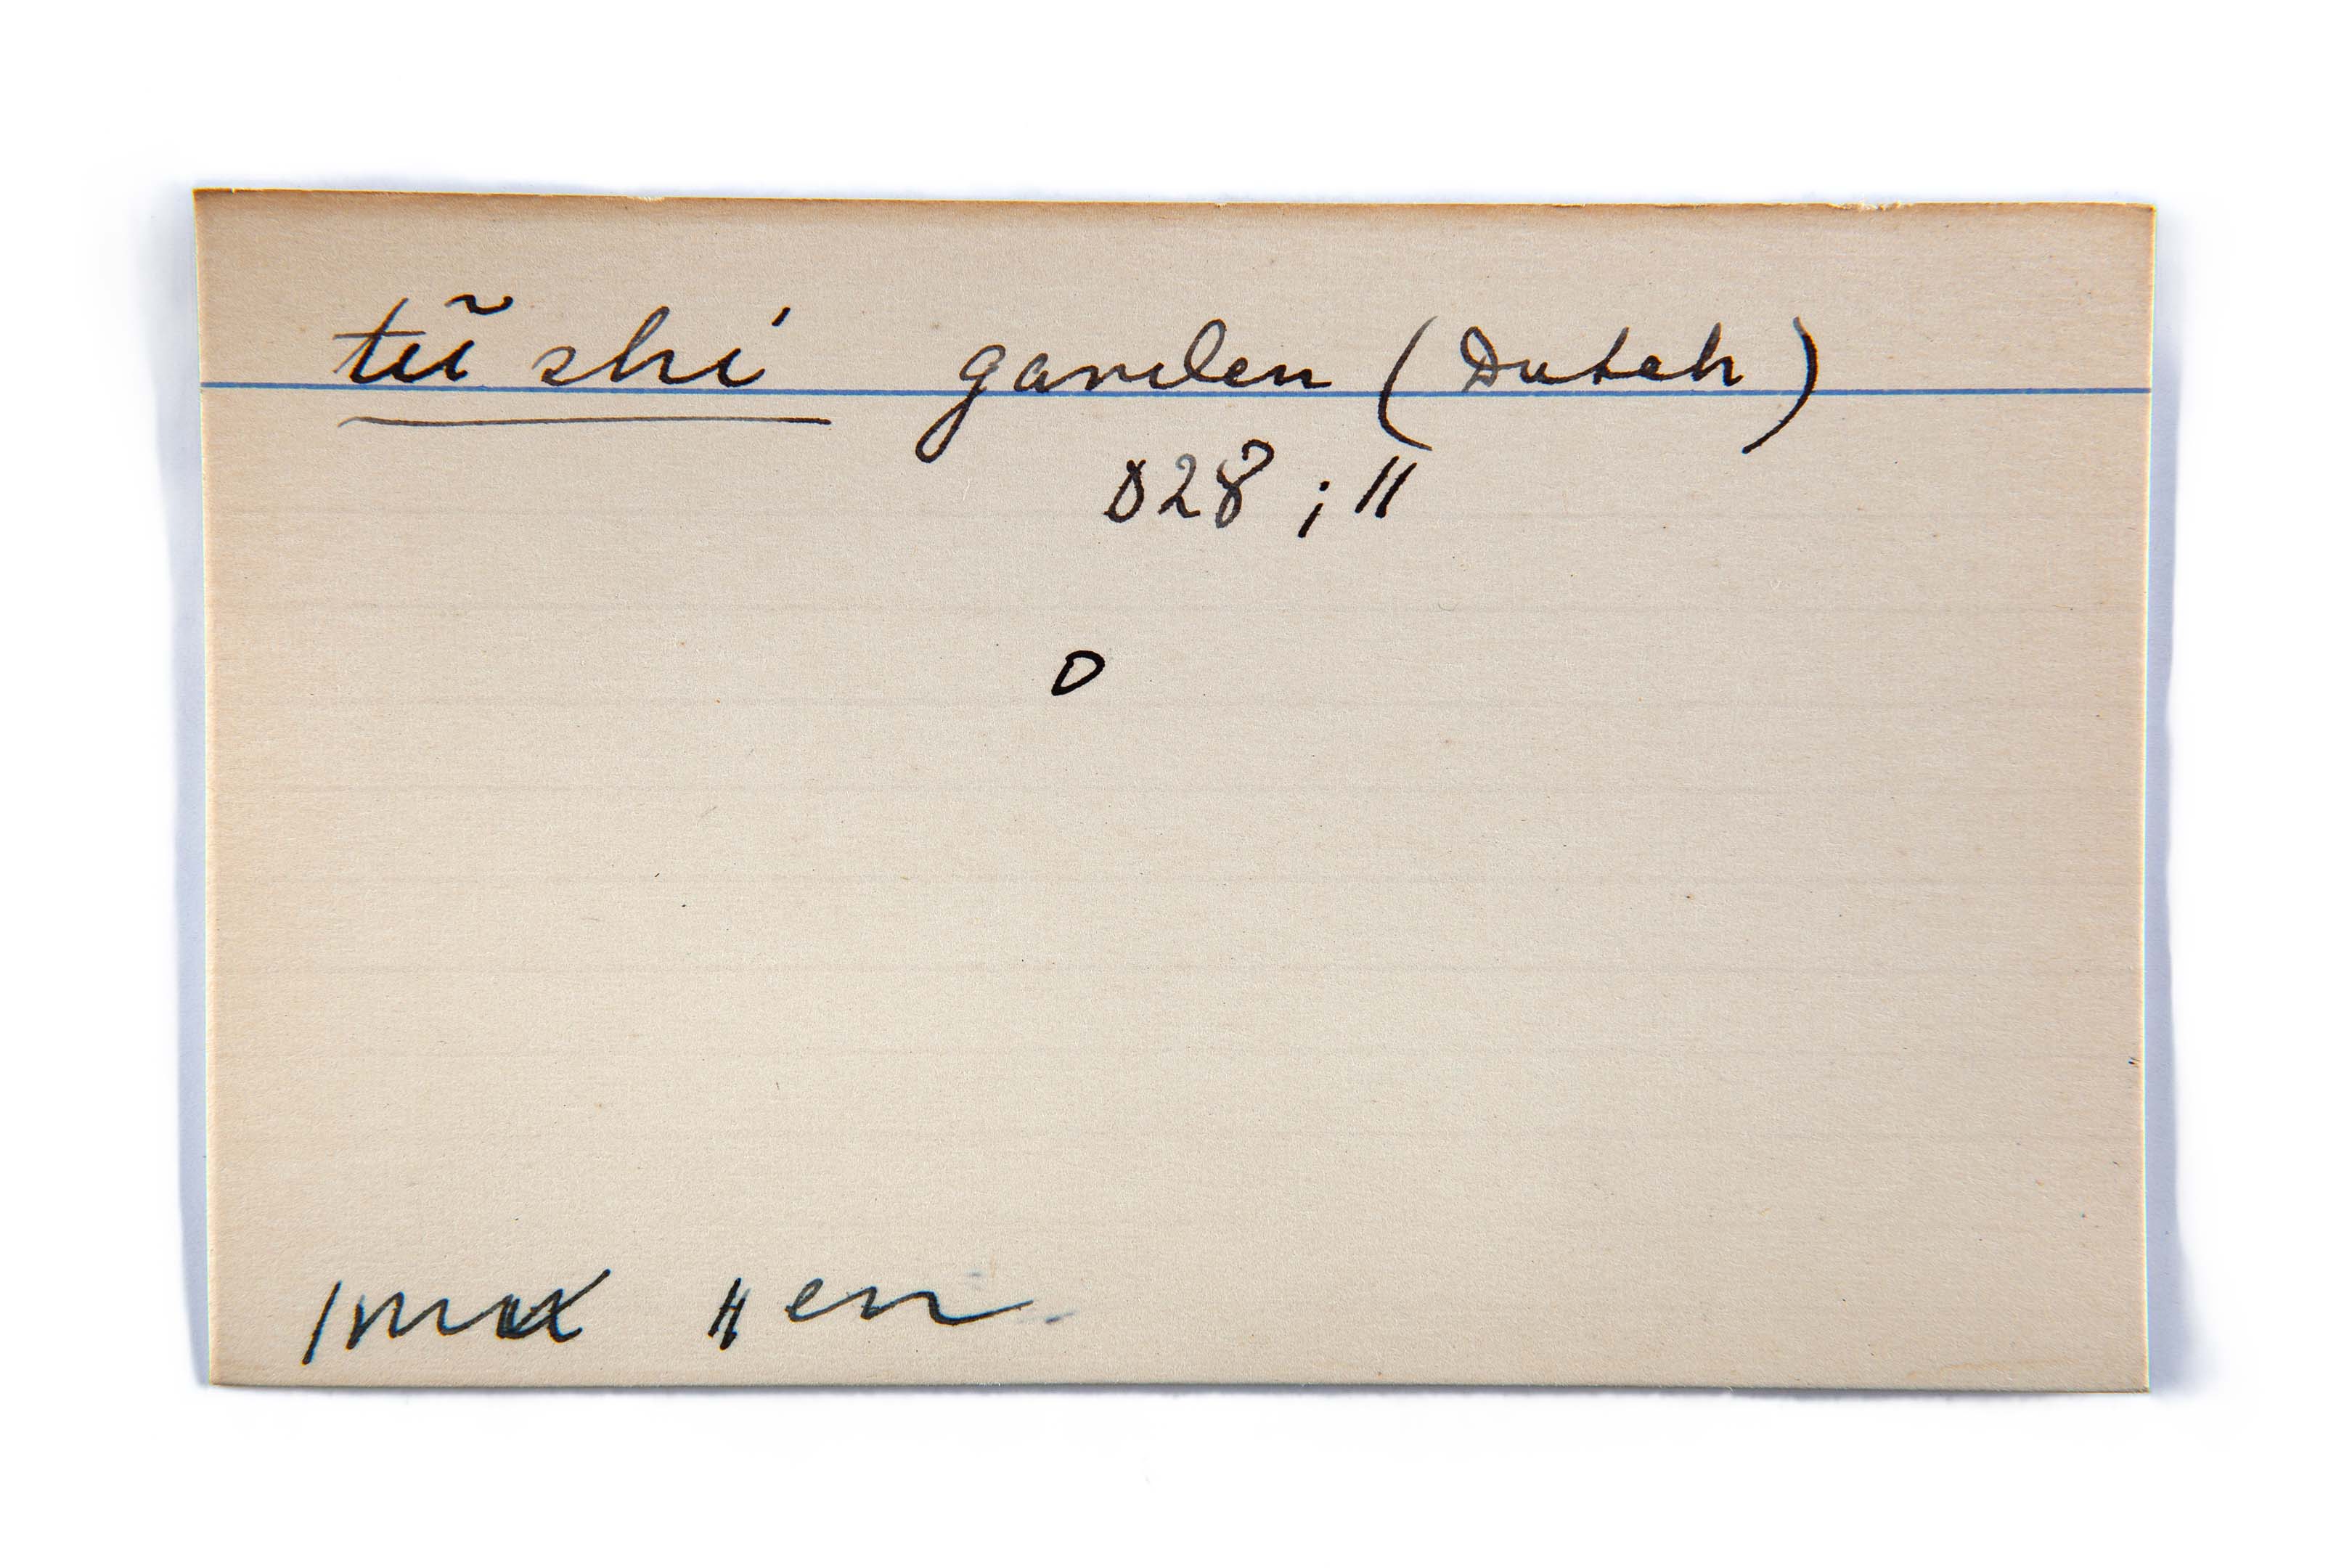 tũshi garden (Dutch)
D28 ; 11
O